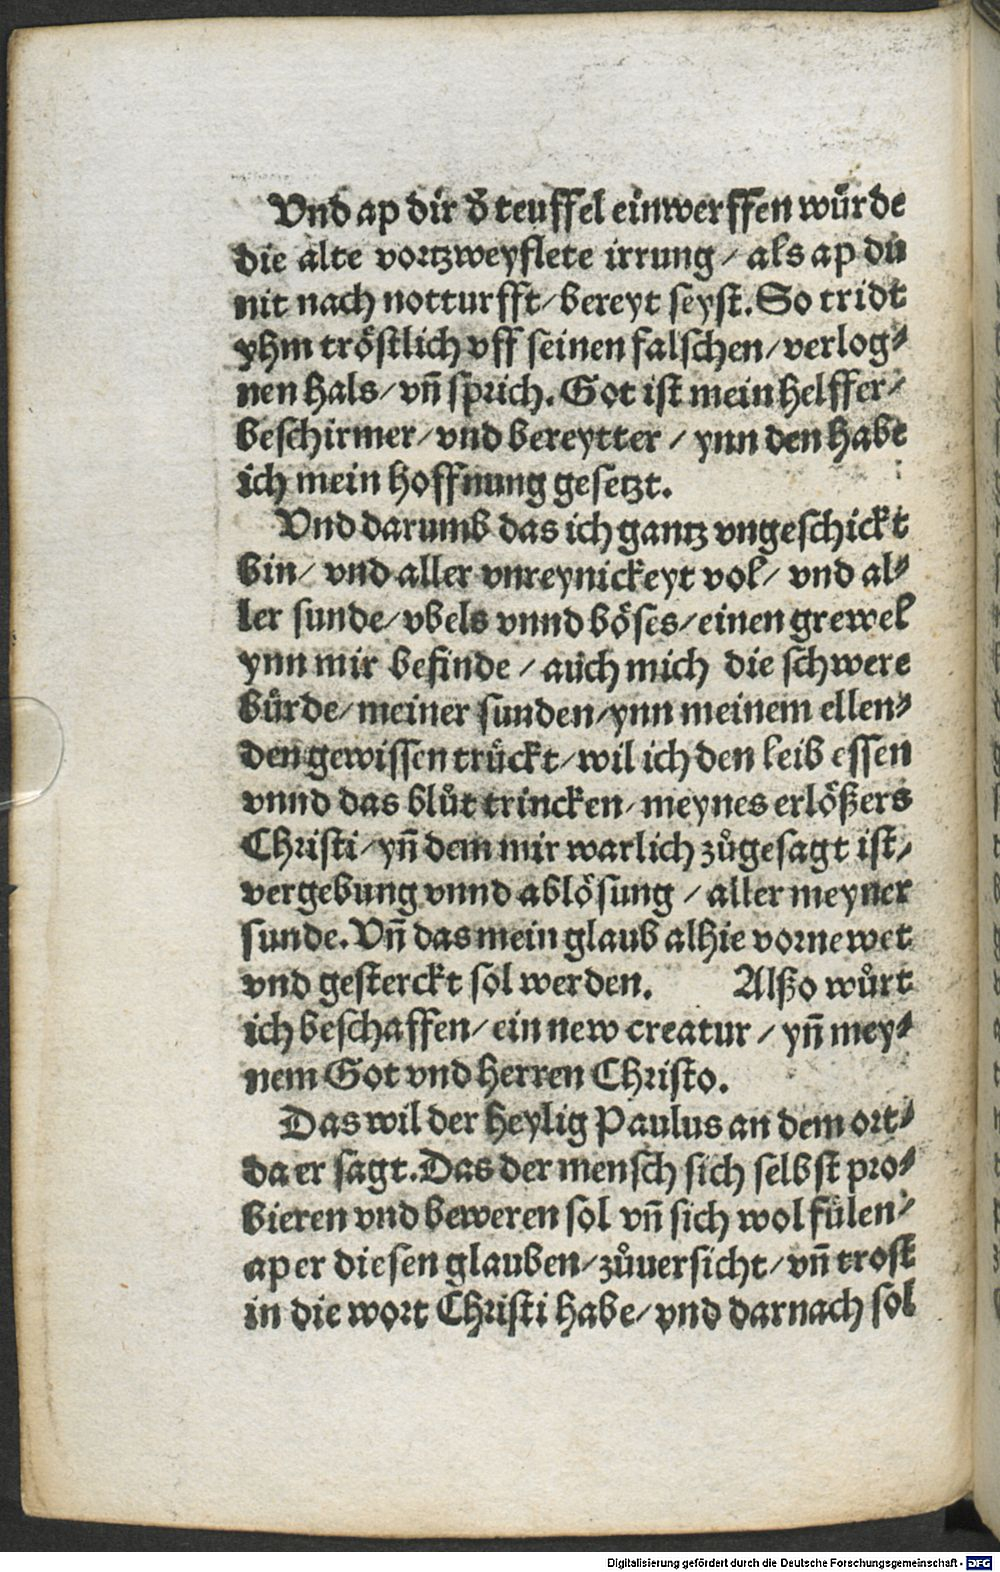 Vnd ap dir d̕ teuffel einwerffen wuͤrde
die alte vortzweyflete irrung / als ap du
nit nach notturfft / bereyt seyst. So tridt
yhm tröstlich vff seinen falschen / verlog⸗
nen hals / vn̄ sprich. Got ist mein helffer /
beschirmer / vnd bereytter / ynn den habe
ich mein hoffnung gesetzt.
Vnd darumb das ich gantz vngeschickt
bin / vnd aller vnreynickeyt vol / vnd al⸗
ler sunde / vbels vnnd böses / einen grewel
ynn mir befinde / auch mich die schwere
buͤrde / meiner sunden / ynn meinem ellen⸗
den gewissen truͤckt / wil ich den leib essen
vnnd das bluͦt trincken / meynes erlößers
Christi / yn̄ dem mir warlich zuͦgesagt ist /
vergebung vnnd ablösung / aller meyner
sunde. Vn̄ das mein glaub alhie vornewet
vnd gesterckt sol werden. Alßo wuͦrt
ich beschaffen / ein new creatur / yn̄ mey⸗
nem Got vnd herren Christo.
Das wil der heylig Paulus an dem ort⸗
da er sagt. Das der mensch sich selbst pro⸗
bieren vnd beweren sol vn̄ sich wol fuͤlen /
ap er diesen glauben / zuͦuersicht / vn̄ trost
in die wort Christi habe / vnd darnach sol
Digitalisierung gefördert durch die Deutsche Forschungsgemeinschaft - DFG